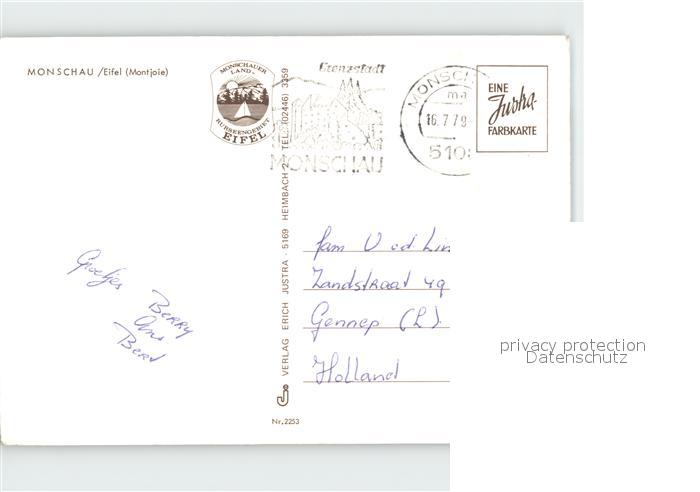 MONSCHAU /Eifel (Montjoie)
MONSCHAUER
LAND
RURSEENGEBIET
EIFEL
Grenzstadt
MONSCHAU
MONSCH
ma
16.7.79
510
EINE
Justra-
FARBKARTE
VERLAG ERICH JUSTRA · 5169 HEIMBACH 2 · TEL. (02446) 3359
Groetjes
BERRY
Bert
fam V od Lin
Zandstraat 49
Gennep (L).
Holland
Nr. 2253
privacy protection
Datenschutz